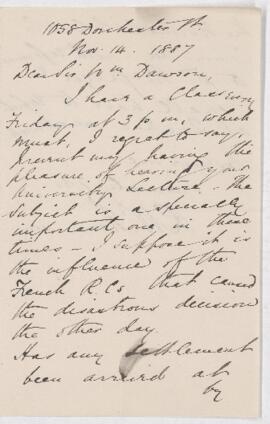 1058 Dorchester St.
Nov. 14. 1887
Dear Sir Wm Dawson,
I have a Class every
Friday at 3 p.m, which
must, I regret to say,
prevent my having the
pleasure of hearing your
University Lecture. The
subject is a specially
important one in these
times - I suppose it is
the influence of the
French R.Cs that caused
the disastrous decision
the other day.
Has any settlement
been arrived at
by